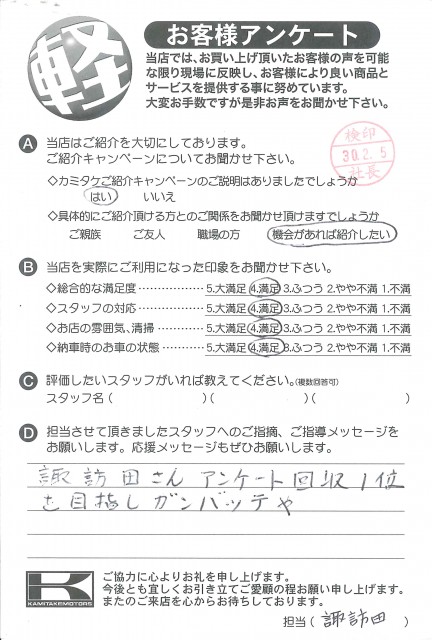 軽
お客様アンケート
当店では、お買い上げ頂いたお客様の声を可能
な限り現場に反映し、お客様により良い商品と
サービスを提供する事に努めています。
大変お手数ですが是非お声をお聞かせ下さい。
A 当店はご紹介を大切にしております。
ご紹介キャンペーンについてお聞かせ下さい。
検印
30.2.5
社長
◇カミタケご紹介キャンペーンのご説明はありましたでしょうか
はい いいえ
◇具体的にご紹介頂ける方とのご関係をお聞かせ頂けますでしょうか
ご親族 ご友人 職場の方 機会があれば紹介したい
B 当店を実際にご利用になった印象をお聞かせ下さい。
◇総合的な満足度 ………………… 5.大満足 4.満足 3.ふつう 2.やや不満 1.不満
◇スタッフの対応 ………………… 5.大満足 4.満足 3.ふつう 2.やや不満 1.不満
◇お店の雰囲気、清掃 …………… 5.大満足 4.満足 3.ふつう 2.やや不満 1.不満
◇納車時のお車の状態 …………… 5.大満足 4.満足 3.ふつう 2.やや不満 1.不満
C 評価したいスタッフがいれば教えてください。(複数回答可)
スタッフ名 ( )( )( )
D 担当させて頂きましたスタッフへのご指摘、ご指導メッセージを
お願いします。応援メッセージもぜひお願いします。
諏訪田さん アンケート回収1位
を目指しガンバッテや
K
KAMITAKEMOTORS
ご協力に心よりお礼を申し上げます。
今後とも宜しくお引き立てご愛顧の程お願い申し上げます。
またのご来店を心からお待ちしております。
担当 ( 諏訪田 )